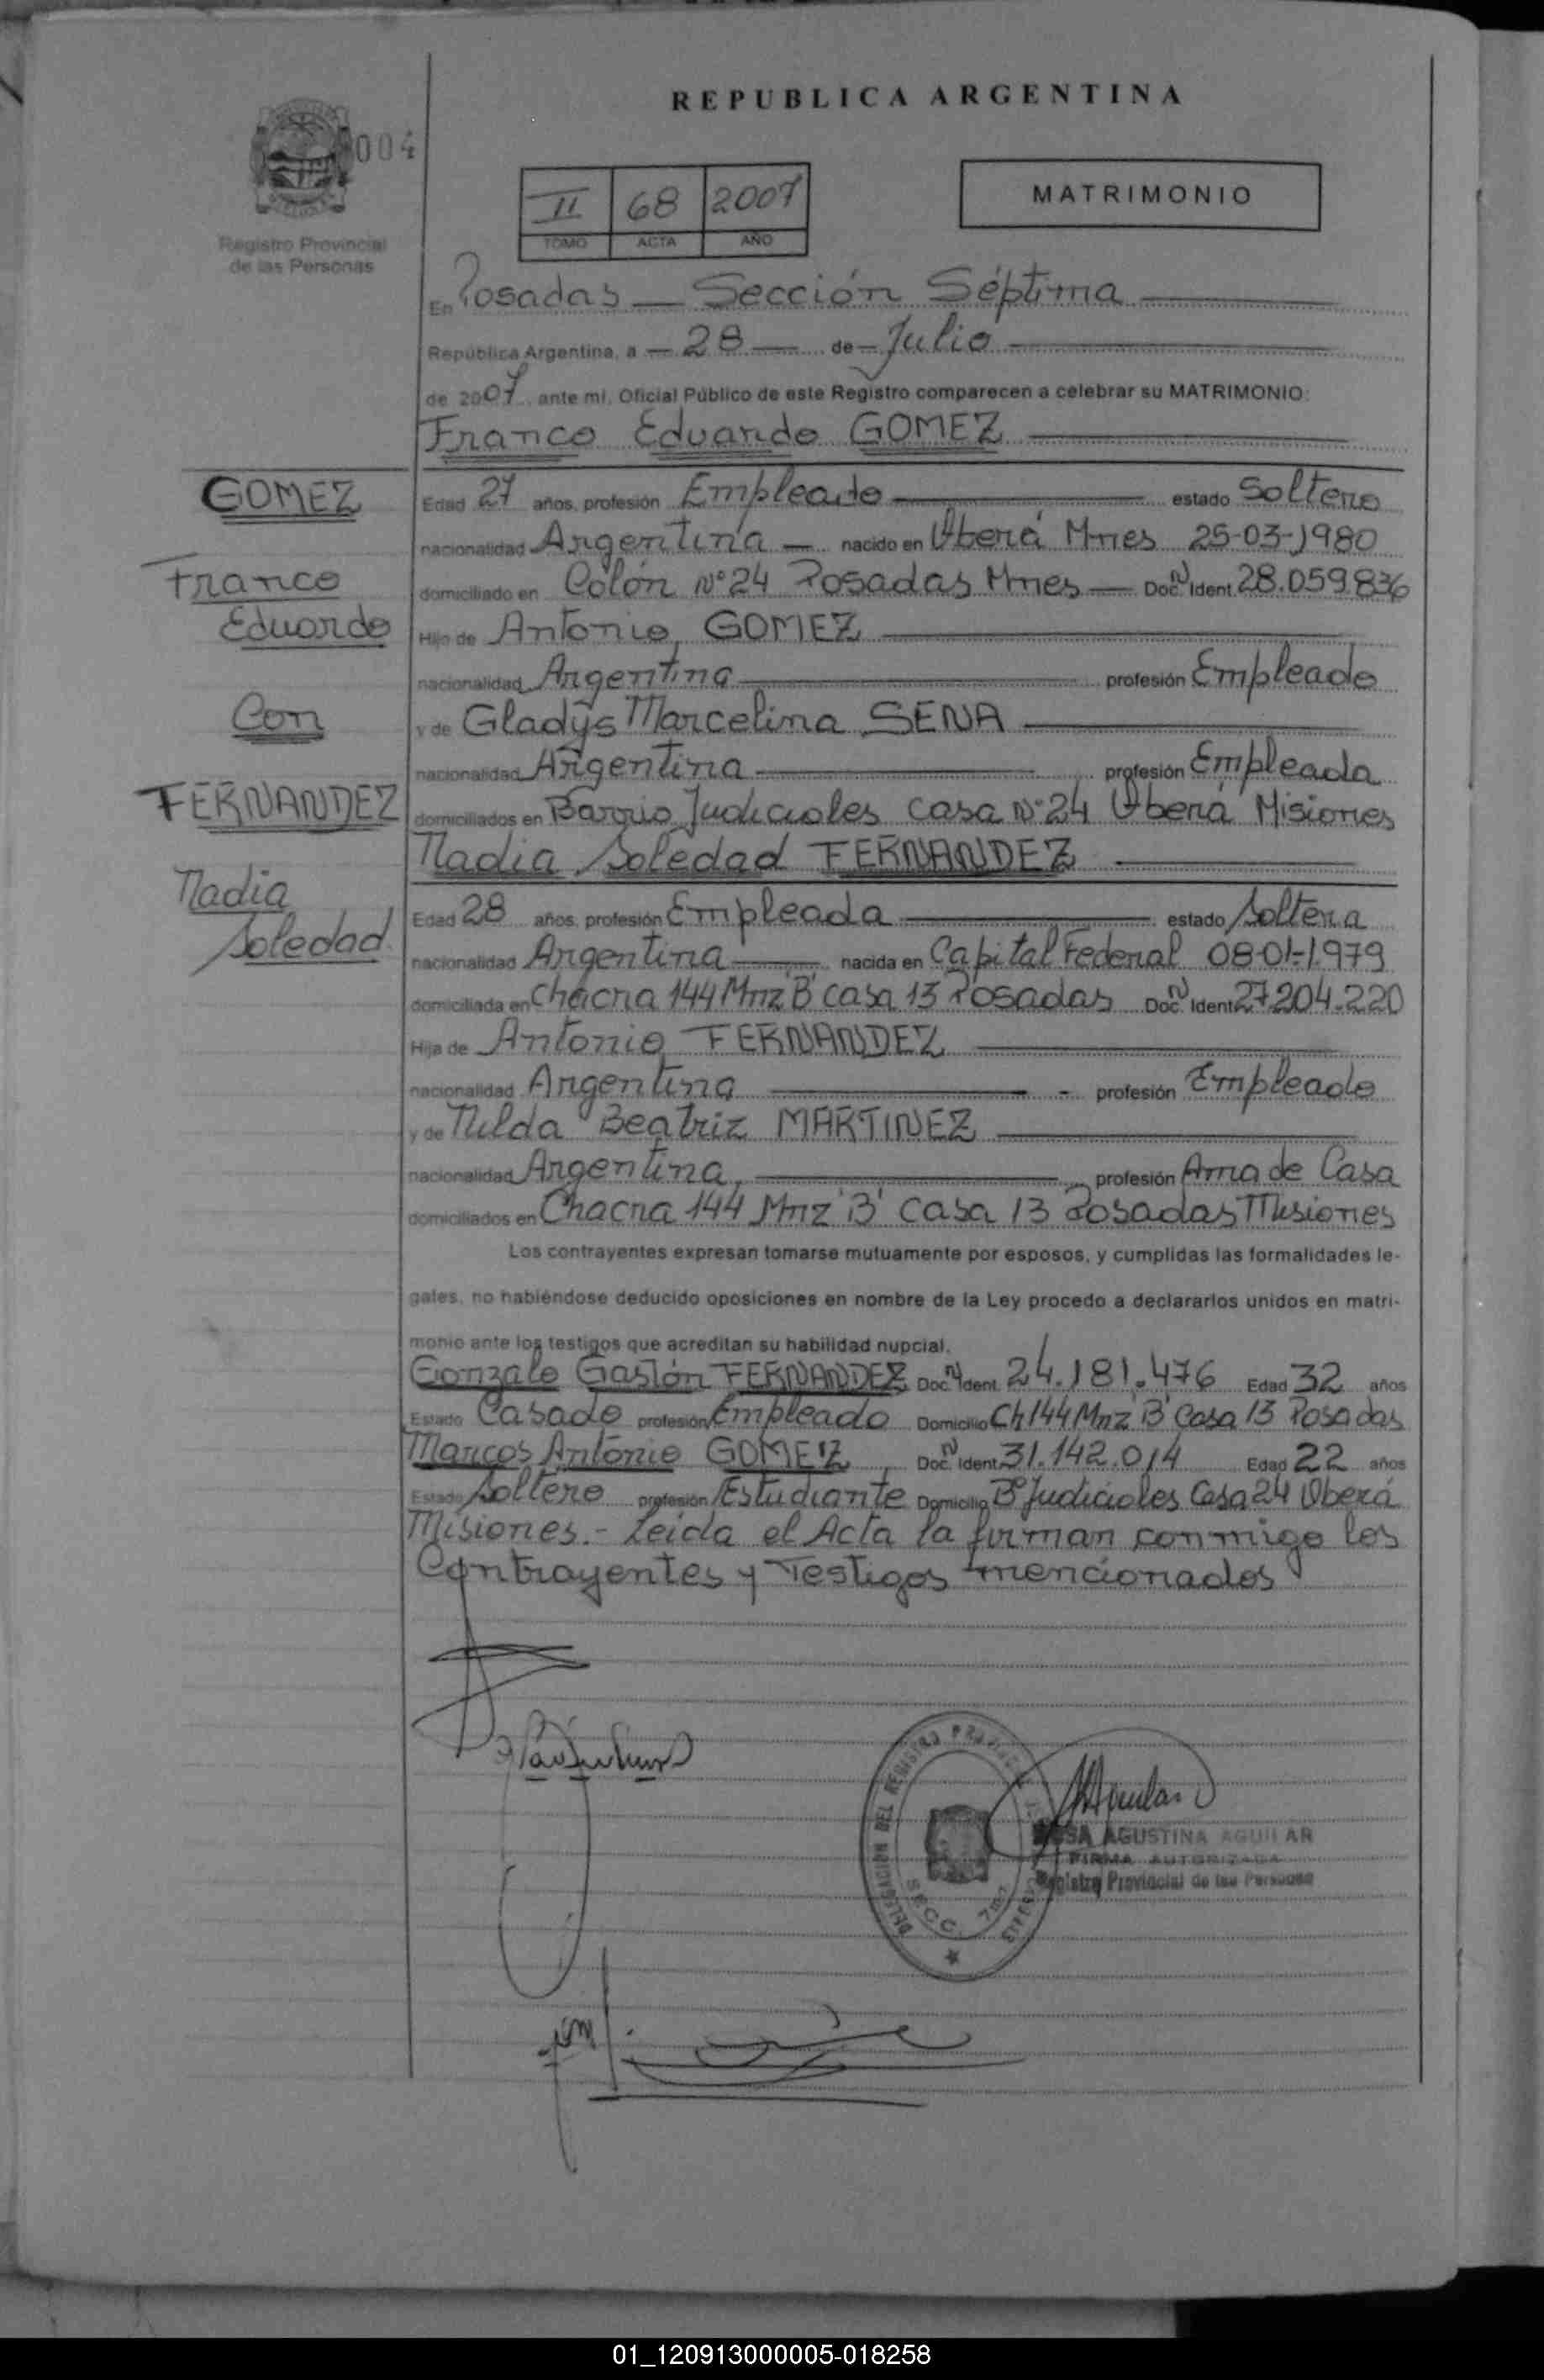 REPUBLICA ARGENTINA
004
Registro Provincial
de las Personas
II 68 2007
TOMO ACTA AÑO
MATRIMONIO
En Posadas — Sección Séptima
República Argentina, a — 28 — de — Julio
de 2007 ante mi, Oficial Público de este Registro comparecen a celebrar su MATRIMONIO:
Franco Eduardo GOMEZ
GOMEZ
Franco
Eduardo
Con
FERNANDEZ
Nadia
Soledad
Edad 27 años, profesión Empleado estado Soltero
nacionalidad Argentina — nacido en Oberá Mnes 25-03-1980
domiciliado en Colón Nº 24 Posadas Mnes — Doc. N Ident. 28.059.836
Hijo de Antonio GOMEZ
nacionalidad Argentina profesión Empleado
y de Gladys Marcelina SENA
nacionalidad Argentina profesión Empleada
domiciliados en Barrio Judiciales casa Nº 24 Oberá Misiones
Nadia Soledad FERNANDEZ
Edad 28 años, profesión Empleada estado Soltera
nacionalidad Argentina nacida en Capital Federal 08-01-1979
domiciliada en Chacra 144 Mnz 'B' casa 13 Posadas Doc. N Ident. 27.204.220
Hija de Antonio FERNANDEZ
nacionalidad Argentina - profesión Empleado
y de Nilda Beatriz MARTINEZ
nacionalidad Argentina, profesión Ama de Casa
domiciliados en Chacra 144 Mnz 'B' Casa 13 Posadas Misiones
Los contrayentes expresan tomarse mutuamente por esposos, y cumplidas las formalidades le-
gales, no habiéndose deducido oposiciones en nombre de la Ley procedo a declararlos unidos en matri-
monio ante los testigos que acreditan su habilidad nupcial.
Gonzalo Gastón FERNANDEZ Doc. N Ident. 24.181.476 Edad 32 años
Estado Casado profesión Empleado Domicilio Ch 144 Mnz 'B' Casa 13 Posadas
Marcos Antonio GOMEZ Doc. N Ident. 31.142.014 Edad 22 años
Estado Soltero profesión Estudiante Domicilio Bº Judiciales Casa 24 Oberá
Misiones.- Leida el Acta la firman conmigo los
Contrayentes y Testigos mencionados
DELEGACION DEL REGISTRO
SECC. 7ma
AGUSTINA AGUILAR
FIRMA AUTORIZADA
Registro Provincial de las Personas
01_120913000005-018258